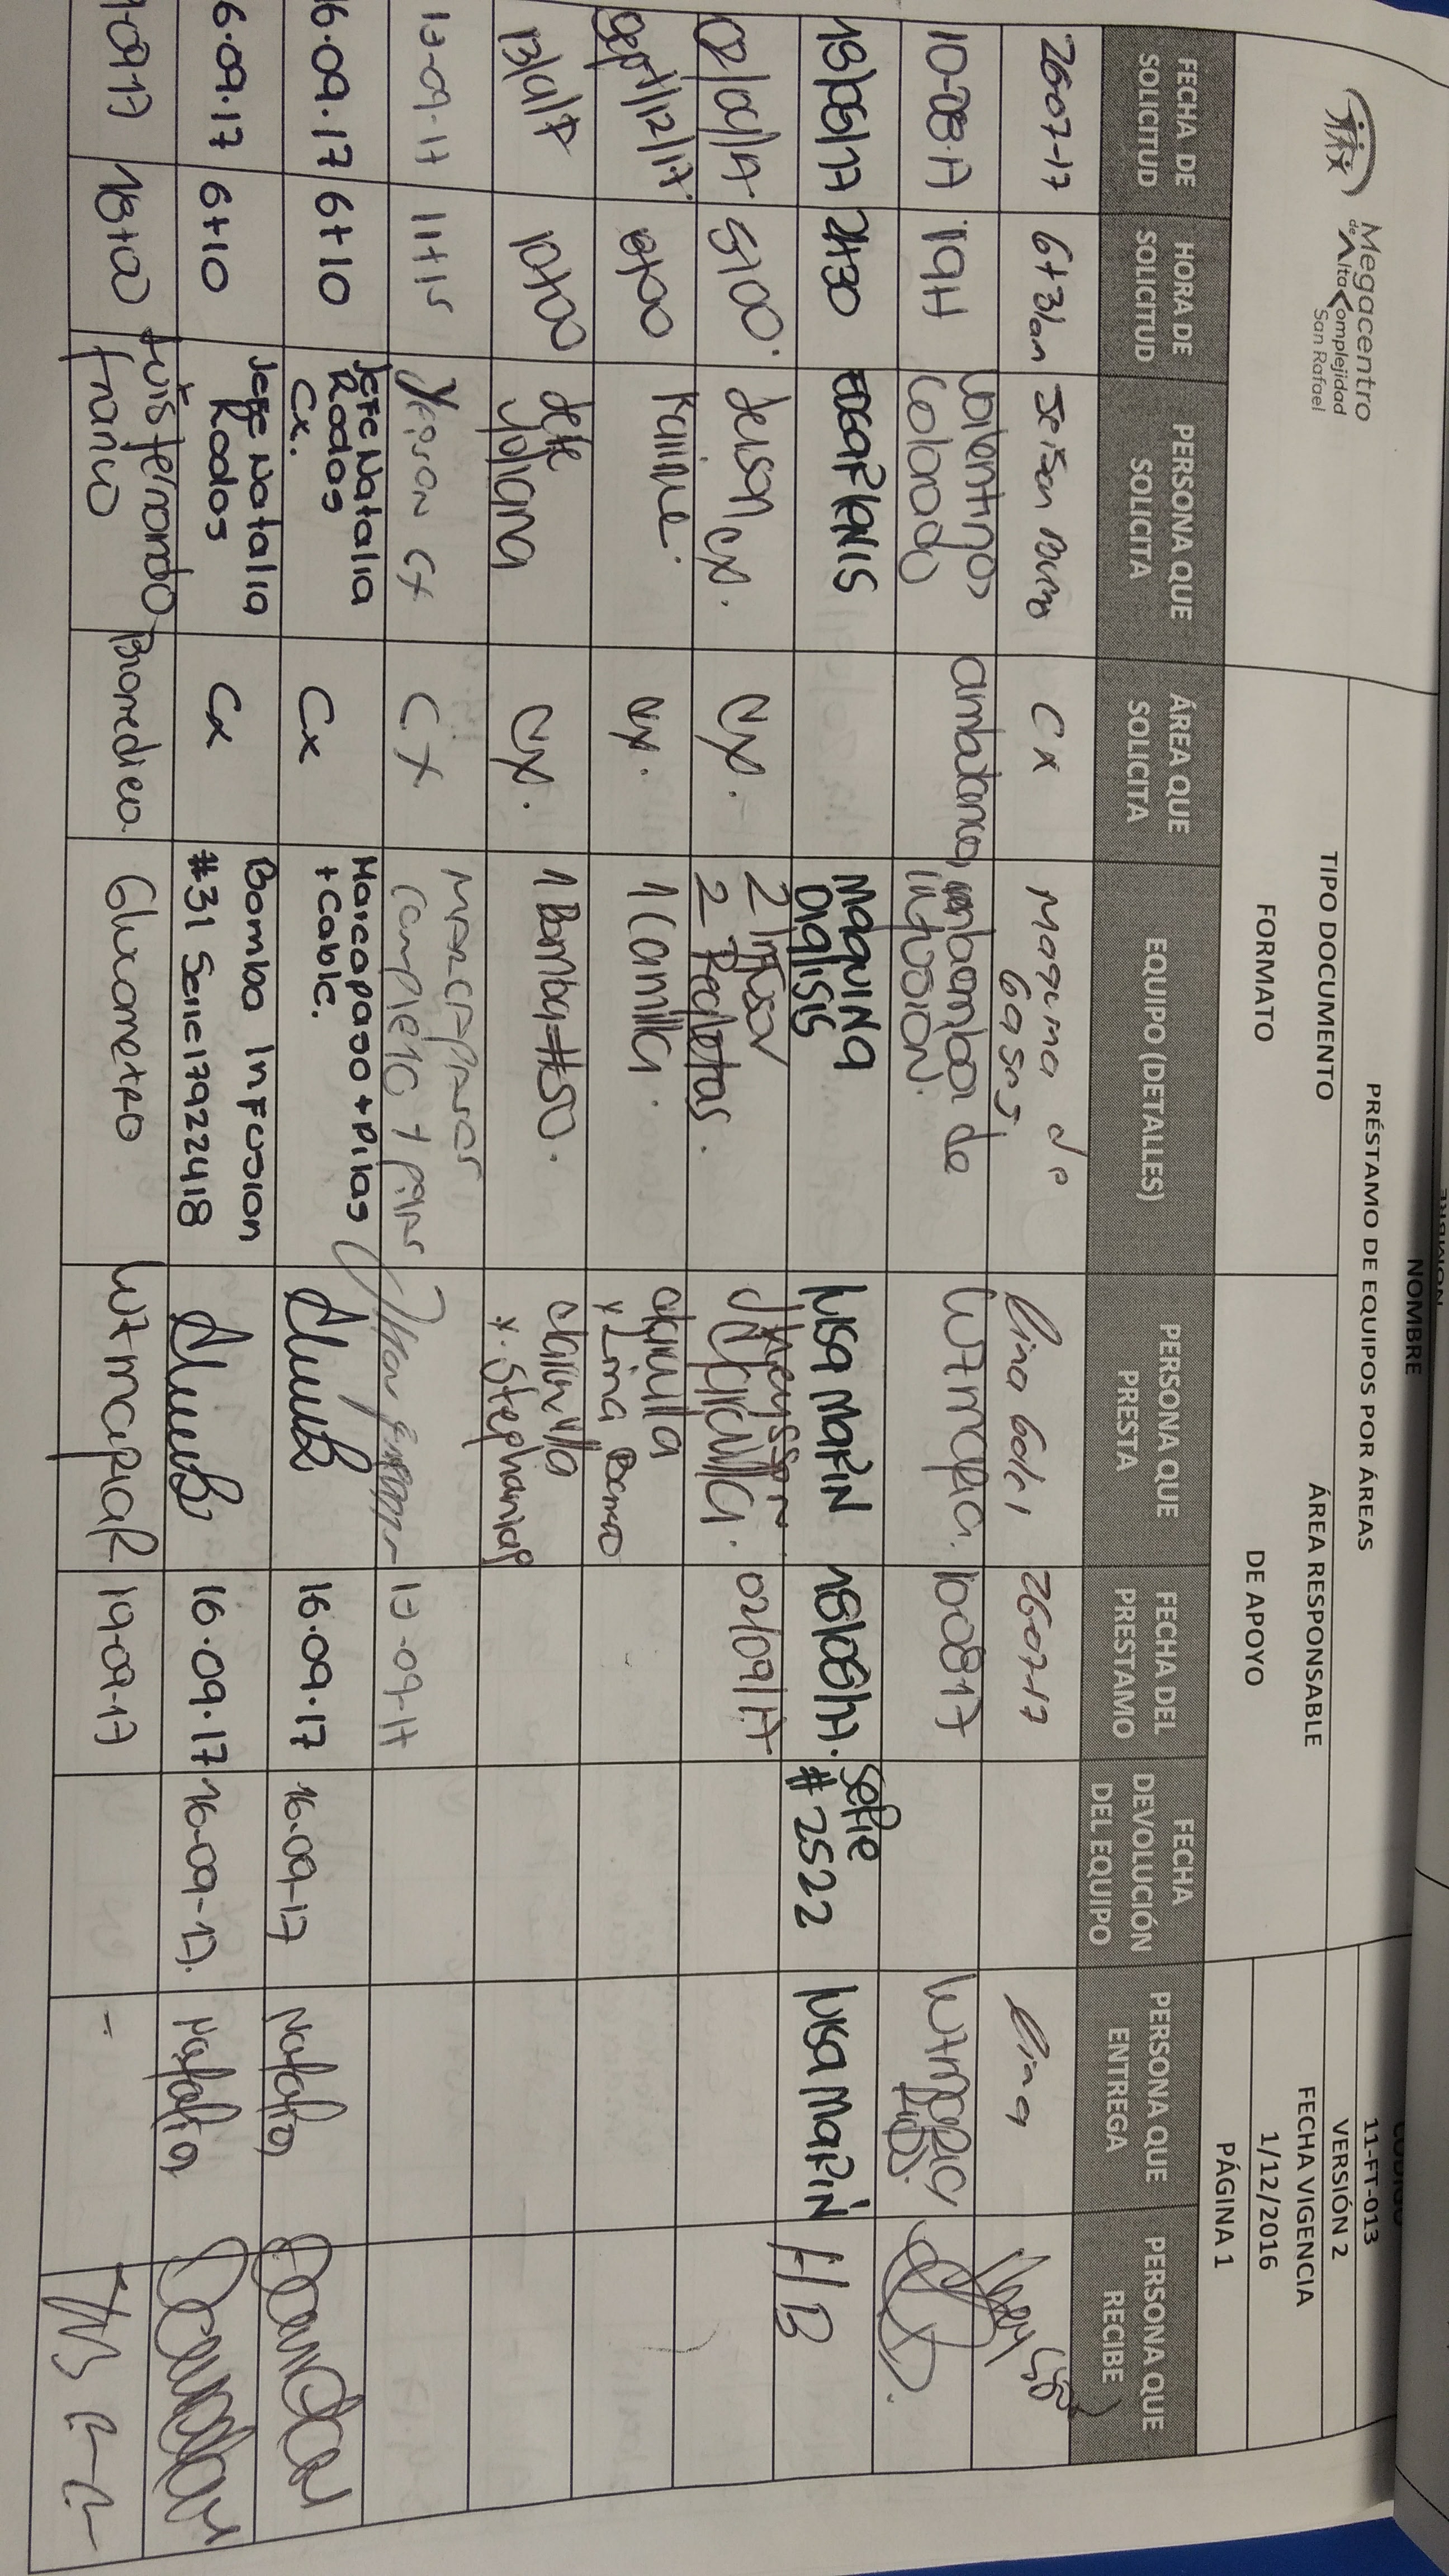 Megacentro
de Alta Complejidad
San Rafael
NOMBRE
PRÉSTAMO DE EQUIPOS POR ÁREAS
TIPO DOCUMENTO
FORMATO
ÁREA RESPONSABLE
DE APOYO
11-FT-013
VERSIÓN 2
FECHA VIGENCIA
1/12/2016
PÁGINA 1
FECHA DE SOLICITUD
HORA DE SOLICITUD
PERSONA QUE SOLICITA
ÁREA QUE SOLICITA
EQUIPO (DETALLES)
PERSONA QUE PRESTA
FECHA DEL PRESTAMO
FECHA DEVOLUCIÓN DEL EQUIPO
PERSONA QUE ENTREGA
PERSONA QUE RECIBE
2607-17 Cx Maquina de gases Lina 2607-17 Lina
19H Valentina Colorado de infusion. Luz maria. 100817 Luz maria
18/08/17 21+30 MAQUINA DIALISIS LUISA MARIN 18/08/17. Serie #2522 LUISA MARIN H/B
02/09/17. 5+00. Jeison cx. cx. 2 infusor 2 Regletas. Jheysson chinilla. 02/09/17.
sept/12/17. cx. 1 Camilla. chinilla y Lina
10+00 Jefe Yuliana cx. 1 Bomba #50. chinilla y Stephania
13-09-17 11+15 Yeison Cx Cx Marcapasos completo + pilas 13-09-17
16.09.17 6+10 Jefe Natalia Rodas Cx. Cx Marcapaso + Pilas + Cable. 16.09.17 16-09-17 Natalia
6.09.17 6+10 Jefe Natalia Rodas Cx Bomba InFusion #31 Serie 17922418 16.09.17 16-09-17. Natalia
-09-17 18+00 Luis fernando franco Biomedico. Glucometro Luz maria R 19-09-17 -